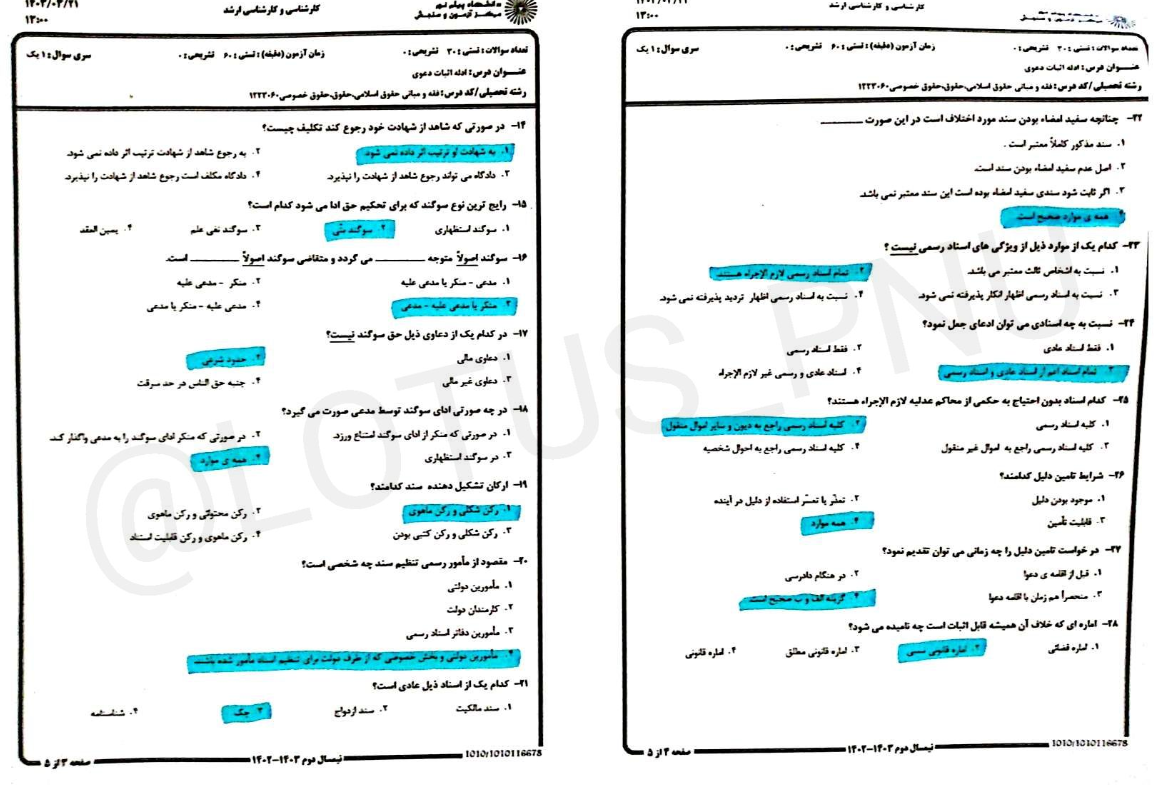 کارشناسی و کارشناسی ارشد
۱۳:۰۰
سری سوال: ۱ یک
زمان آزمون (دقیقه): تستی: ۶۰ تشریحی: ۰
تعداد سوالات: تستی: ۳۰ تشریحی: ۰
عنـــوان درس: ادله اثبات دعوی
رشته تحصیلی/کد درس: فقه و مبانی حقوق اسلامی،حقوق،حقوق خصوصی۱۲۲۳۰۶۰
۱۴- در صورتی که شاهد از شهادت خود رجوع کند تکلیف چیست؟
۱. به شهادت او ترتیب اثر داده نمی شود.
۲. به رجوع شاهد از شهادت ترتیب اثر داده نمی شود.
۳. دادگاه می تواند رجوع شاهد از شهادت را نپذیرد.
۴. دادگاه مکلف است رجوع شاهد از شهادت را نپذیرد.
۱۵- رایج ترین نوع سوگند که برای تحکیم حق ادا می شود کدام است؟
۱. سوگند استظهاری
۲. سوگند بتّی
۳. سوگند نفی علم
۴. یمین العقد
۱۶- سوگند اصولاً متوجه ________ می گردد و متقاضی سوگند اصولاً ________ است.
۱. مدعی - منکر یا مدعی علیه
۲. منکر - مدعی علیه
۳. منکر یا مدعی علیه - مدعی
۴. مدعی علیه - منکر یا مدعی
۱۷- در کدام یک از دعاوی ذیل حق سوگند نیست؟
۱. دعاوی مالی
۲. حدود شرعی
۳. دعاوی غیر مالی
۴. جنبه حق الناس در حد سرقت
۱۸- در چه صورتی ادای سوگند توسط مدعی صورت می گیرد؟
۱. در صورتی که منکر از ادای سوگند امتناع ورزد.
۲. در صورتی که منکر ادای سوگند را به مدعی واگذار کند.
۳. در سوگند استظهاری
۴. همه ی موارد
۱۹- ارکان تشکیل دهنده سند کدامند؟
۱. رکن شکلی و رکن ماهوی
۲. رکن محتوائی و رکن ماهوی
۳. رکن شکلی و رکن کتبی بودن
۴. رکن ماهوی و رکن قابلیت استناد
۲۰- مقصود از مأمور رسمی تنظیم سند چه شخصی است؟
۱. مأمورین دولتی
۲. کارمندان دولت
۳. مأمورین دفاتر اسناد رسمی
۴. مأمورین دولتی و بخش خصوصی که از طرف دولت برای تنظیم اسناد مأمور شده باشند.
۲۱- کدام یک از اسناد ذیل عادی است؟
۱. سند مالکیت
۲. سند ازدواج
۳. چک
۴. شناسنامه
صفحه ۳ از ۵
نیمسال دوم ۱۴۰۳-۱۴۰۲
1010/1010116678
کارشناسی و کارشناسی ارشد
۱۳:۰۰
سری سوال: ۱ یک
زمان آزمون (دقیقه): تستی: ۶۰ تشریحی: ۰
تعداد سوالات: تستی: ۳۰ تشریحی: ۰
عنـــوان درس: ادله اثبات دعوی
رشته تحصیلی/کد درس: فقه و مبانی حقوق اسلامی،حقوق،حقوق خصوصی۱۲۲۳۰۶۰
۲۲- چنانچه سفید امضاء بودن سند مورد اختلاف است در این صورت ________
۱. سند مذکور کاملاً معتبر است .
۲. اصل عدم سفید امضاء بودن سند است.
۳. اگر ثابت شود سندی سفید امضاء بوده است این سند معتبر نمی باشد.
۴. همه ی موارد صحیح است.
۲۳- کدام یک از موارد ذیل از ویژگی های اسناد رسمی نیست ؟
۱. نسبت به اشخاص ثالث معتبر می باشد.
۲. تمام اسناد رسمی لازم الإجراء هستند.
۳. نسبت به اسناد رسمی اظهار انکار پذیرفته نمی شود.
۴. نسبت به اسناد رسمی اظهار تردید پذیرفته نمی شود.
۲۴- نسبت به چه اسنادی می توان ادعای جعل نمود؟
۱. فقط اسناد عادی
۲. فقط اسناد رسمی
۳. تمام اسناد اعم از اسناد عادی و اسناد رسمی
۴. اسناد عادی و رسمی غیر لازم الإجراء
۲۵- کدام اسناد بدون احتیاج به حکمی از محاکم عدلیه لازم الإجراء هستند؟
۱. کلیه اسناد رسمی
۲. کلیه اسناد رسمی راجع به دیون و سایر اموال منقول
۳. کلیه اسناد رسمی راجع به اموال غیر منقول
۴. کلیه اسناد رسمی راجع به احوال شخصیه
۲۶- شرایط تامین دلیل کدامند؟
۱. موجود بودن دلیل
۲. تعذّر یا تعسّر استفاده از دلیل در آینده
۳. قابلیت تأمین
۴. همه موارد
۲۷- در خواست تامین دلیل را چه زمانی می توان تقدیم نمود؟
۱. قبل از اقامه ی دعوا
۲. در هنگام دادرسی
۳. منحصراً هم زمان با اقامه دعوا
۴. گزینه الف و ب صحیح است.
۲۸- اماره ای که خلاف آن همیشه قابل اثبات است چه نامیده می شود؟
۱. اماره قضائی
۲. اماره قانونی نسبی
۳. اماره قانونی مطلق
۴. اماره قانونی
صفحه ۴ از ۵
نیمسال دوم ۱۴۰۳-۱۴۰۲
1010/1010116678
@LOTUS_PNU